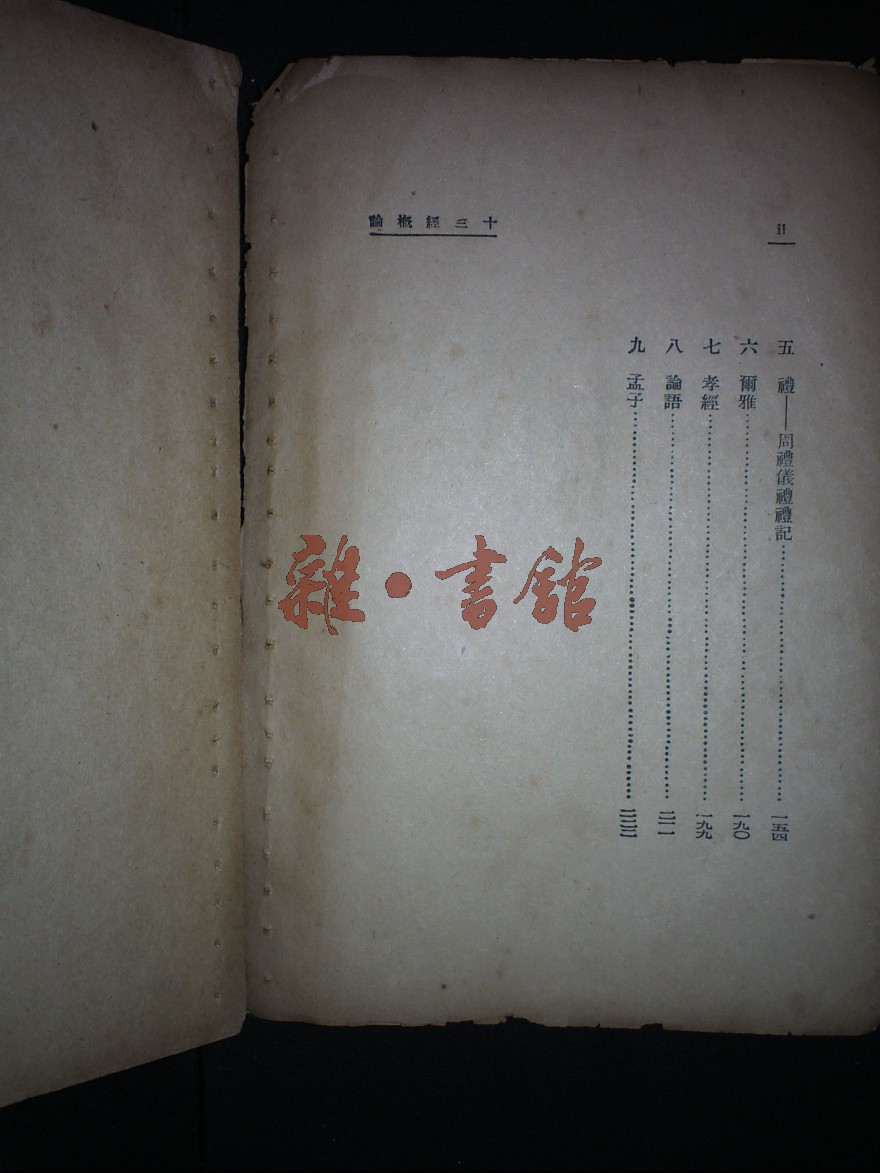 ii
十三經概論
五 禮——周禮儀禮禮記……一五四
六 爾雅……一九〇
七 孝經……一九九
八 論語……二一一
九 孟子……
雜·書館